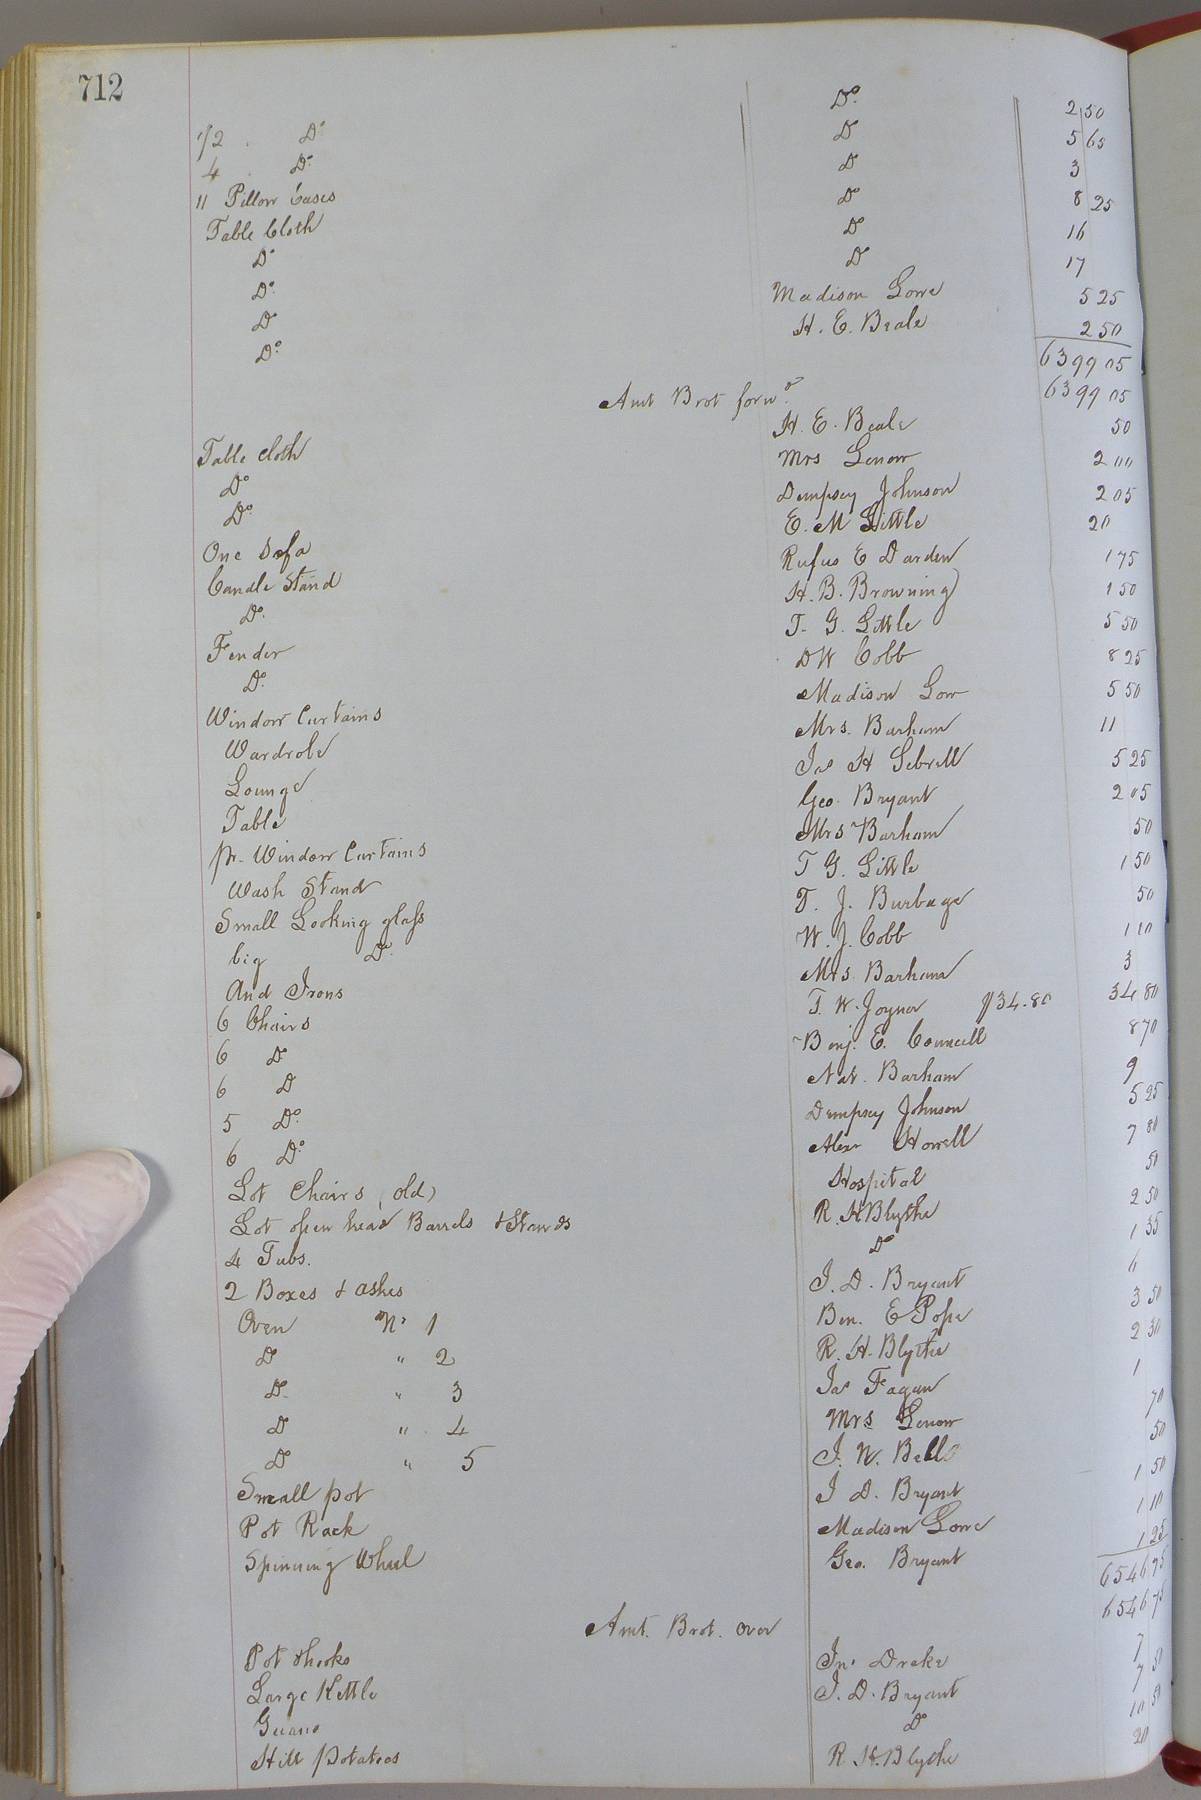 712
1/2 Do Do 2 50
4 Do Do 5 65
11 Pillow Cases Do 3
Table Cloth Do 8 25
Do Do 16
Do Do 17
Do Madison Lowe 5 25
Do H. E. Beale 2 50
6399 05
Amt Brot forwd. 6399 05
Table cloth H. E. Beale 50
Do Mrs Lenow 2 00
Do Dempsey Johnson 2 05
One Sofa E. M Little 20
Candle Stand Rufus E Darden 1 75
Do. H. B. Browning 1 50
Fender T. G. Little 5 50
Do. D W Cobb 8 25
Window Curtains Madison Low 5 50
Wardrobe Mrs. Barham 11
Lounge Jas H Sebrell 5 25
Table Geo. Bryant 2 05
pr. Window Curtains Mrs Barham 50
Wash Stand T G. Little 1 50
Small Looking glass T. J. Burbage 50
big Do. W. J. Cobb 1 10
And Irons Mrs. Barham 3
6 Chairs T. W. Joyner $34.80 34 80
6 Do Benj. E. Councell 8 70
6 Do Nat. Barham 9
5 Do. Dempsey Johnson 5 25
6 Do. Alexr Howell 7 80
Lot Chairs (old) Hospital 50
Lot open head Barrels & Stands R. H Blythe 2 50
4 Tubs. Do 1 35
2 Boxes & ashes J. D. Bryant 6
Oven No 1 Ben. E Pope 3 50
Do " 2 R. H. Blythe 2 30
Do " 3 Jas Fagan 1
Do " 4 Mrs Lenow 70
Do " 5 J. N. Bell 50
Small pot J D. Bryant 1 50
Pot Rack Madison Lowe 1 10
Spinning Wheel Geo. Bryant 1 25
6546 75
Amt. Brot. over 6546 75
Pot hooks Jno Drake 7
Large Kettle J. D. Bryant 7 50
Guano Do 10 50
Hill potatoes R. H. Blythe 20